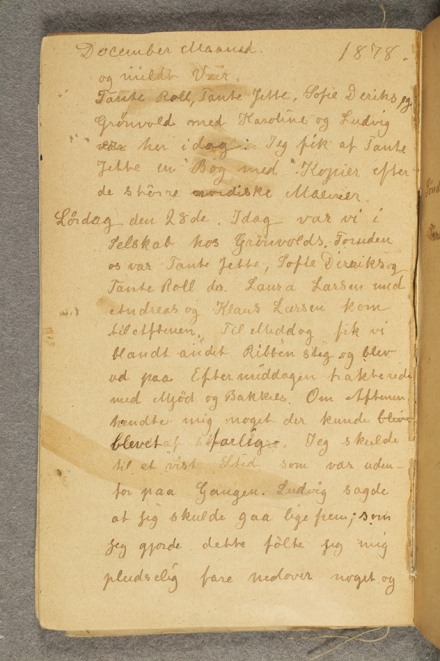 December Maaned. 1878.
og mildt Veir.
Tante Roll, Tante Jette, Sofie Deriks og
Grønvold med Karoline og Ludvig
var her idag. Jeg fik af Tante
Jette en Bog med Kopier efter
de større nordiske Malerier.
Lördag den 28de. Idag var vi i
Selskab hos Grønvolds. Foruden
os var Tante Jette, Sofie Diriks og
Tante Roll der. Laura Larsen med
Andreas og Klaus Larsen kom
til Aftenen. Til Middag fik vi
blandt andet Ribbensteg og blev
ud paa Eftermiddagen trakterede
med Mjød og Bakkels. Om Aftenen
hendte mig noget der kunde blive
blevet farlig. Jeg skulde
til et vist Sted som var uden-
for paa Gangen. Ludvig sagde
at jeg skulde gaa lige frem; som
jeg gjorde dette fölte jeg mig
pludselig fare nedover noget og